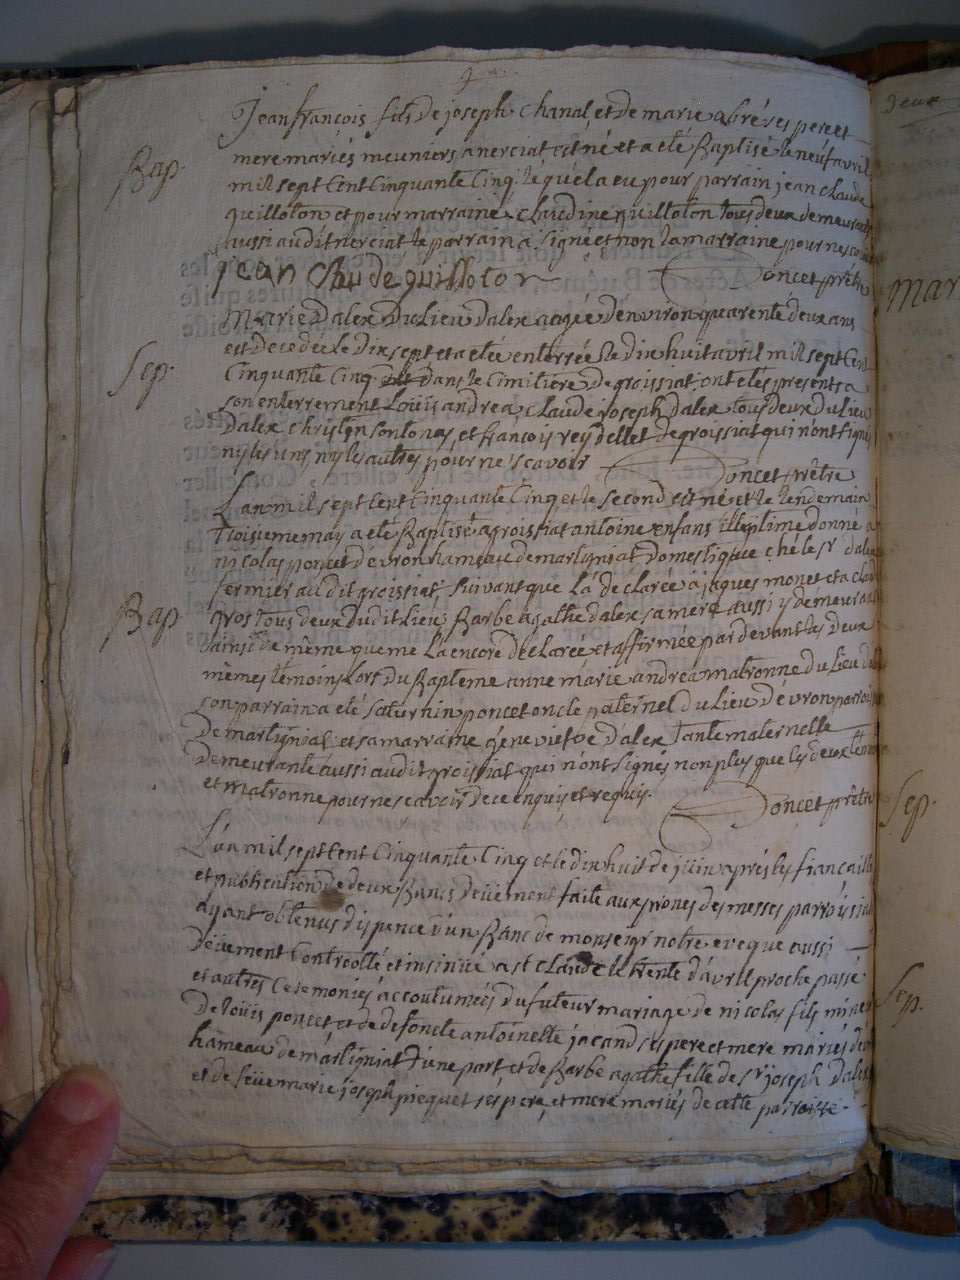 Jean françois fils de joseph Chanal, et de marie abré ses pere et
Bap
mere mariés meuniers a nerciat est né et a eté Baptisé le neuf avril
mil sept Cent Cinquante Cinq léquél a eu pour parrain jean claude
guilloton et pour marraine claudine guilloton tous deux demeurants
aussi audit nerciat le parrain a signé et non la marraine pour ne
jean Claude guilloton
Poncet prêtre
Marie Dalex Du Lieu Dalex agée D'environ quarente deux ans
est Decedée le Dix sept et a etée enterrée le Dix huit avril mil sept Cent
Sep.
Cinquante Cinq Dans le Cimitiere De groissiat, ont etés presents a
son enterrement Loüis andrea, claude joseph Dalex tous deux du Lieu
Dalex et françois rey dellet de groissiat qui n'ont signé
ny les uns ny les autres pour ne sçavoir
Poncet prêtre
L'an mil sept Cent Cinquante Cinq et le second est né et le lendemain
troisieme may a eté Baptisé a groissiat antoine enfans illégitime donné a
nicolas poncet d'évron hameau de martigniat Domestique ché le sr dalex
fermier au dit groissiat, suivant que L'a declarée a jaques monet et a
Bap
gros tous deux dudit Lieu Barbe agathe dalex sa mere aussi y demeurant
ainsi de même que me L'a encore declarée et affirmée par devant les deux
mêmes temoins Lors du Bapteme anne marie andrea matronne du Lieu
son parrain a eté saturnin poncet oncle paternel du Lieu D'évron parroisse
De martigniat, et sa marraine genevieve dalex Tante maternelle
Demeurante aussi au dit groissiat qui n'ont signés non plus que les deux
et matronne pour ne sçavoir de ce enquis et requis.
Poncet prêtre
L'an mil sept Cent Cinquante Cinq et le dix huit de juin aprés les fiancailles
et publication de deux Bancs deüement faite aux prones des messes parroissiales
ayant obtenus dispence d'un Banc de monseigr notre eveque aussi
Deüement Controllé et insinüé a st claude le trente d'avril proche passé
et autres Ceremonies accoutumées du futeur mariage de nicolas fils mineur
De loüis poncet et de defoncte antoinette jacand ses pere et mere mariés
hameau de martigniat d'une part, et de Barbe agathe fille de sr joseph Dalex
et de feüe marie joseph piequet ses pere, et mere mariés de cette parroisse.
Deux
Mar
Sep.
Sep.